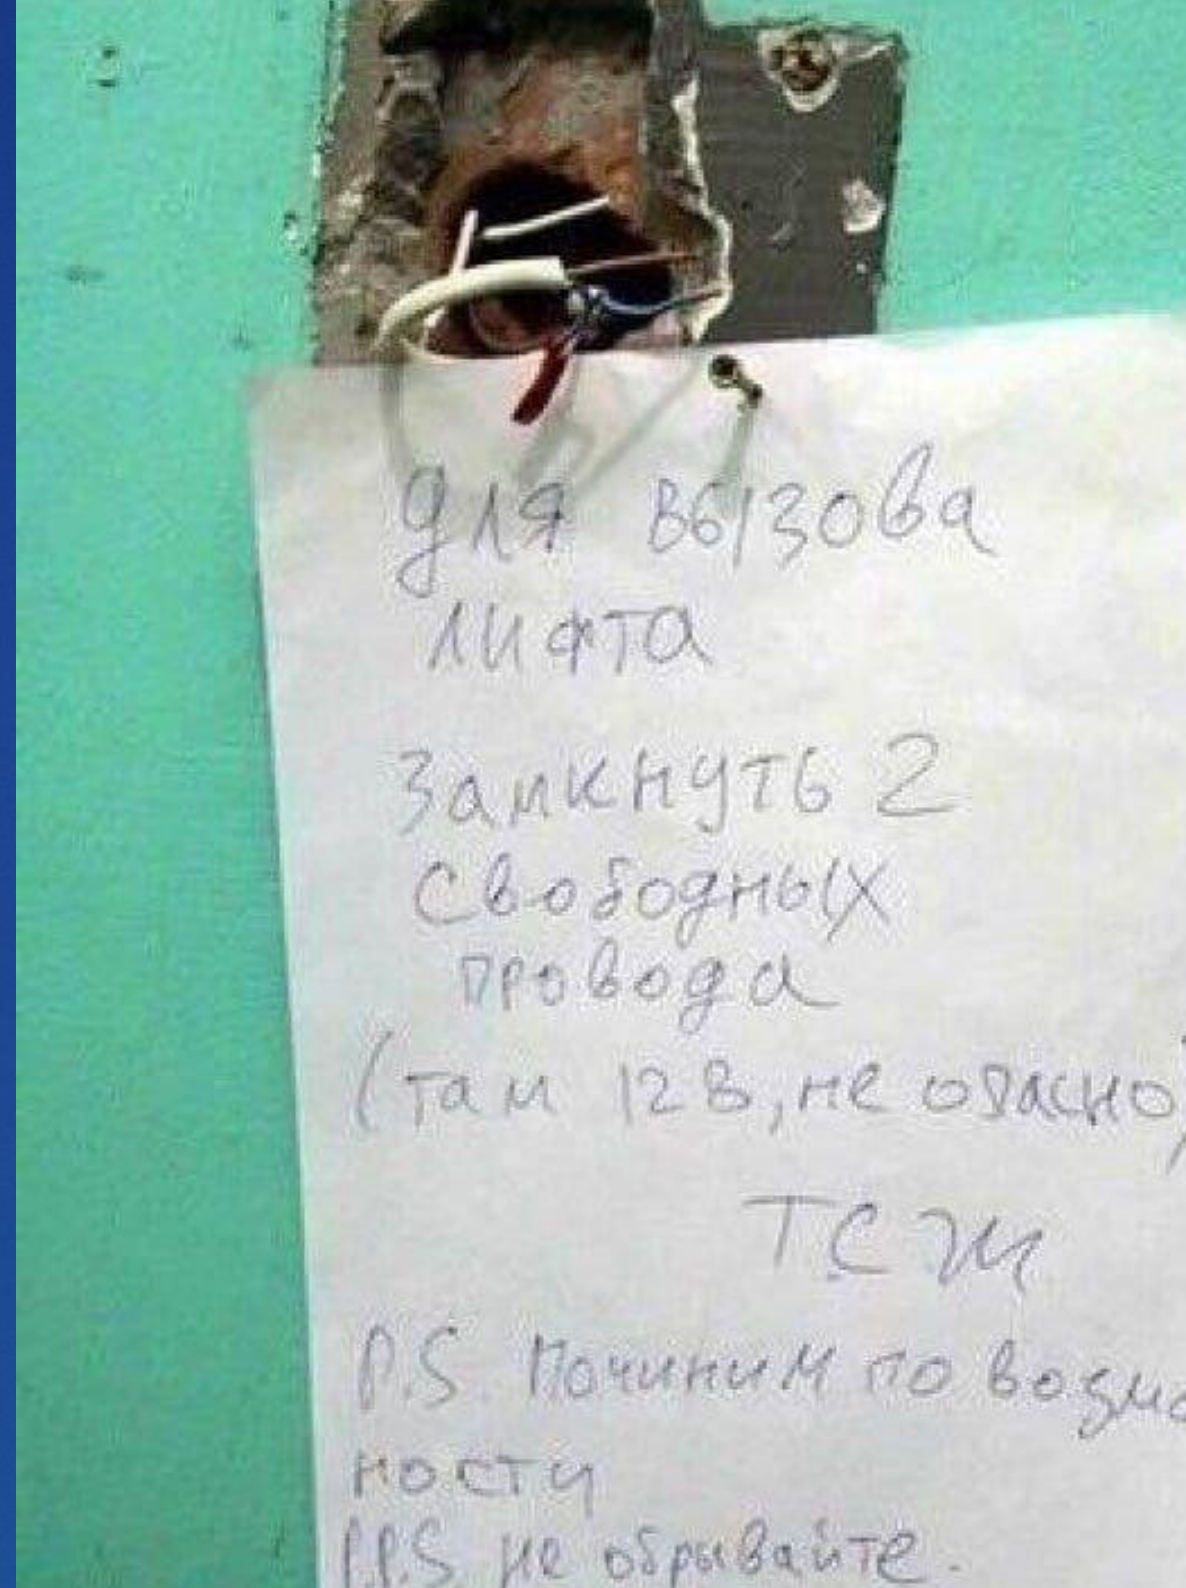 Для вызова
лифта
Замкнуть 2
свободных
провода
(там 12В, не опасно)
ТСЖ
P.S Починим по возмо
ности
P.P.S не обрывайте.